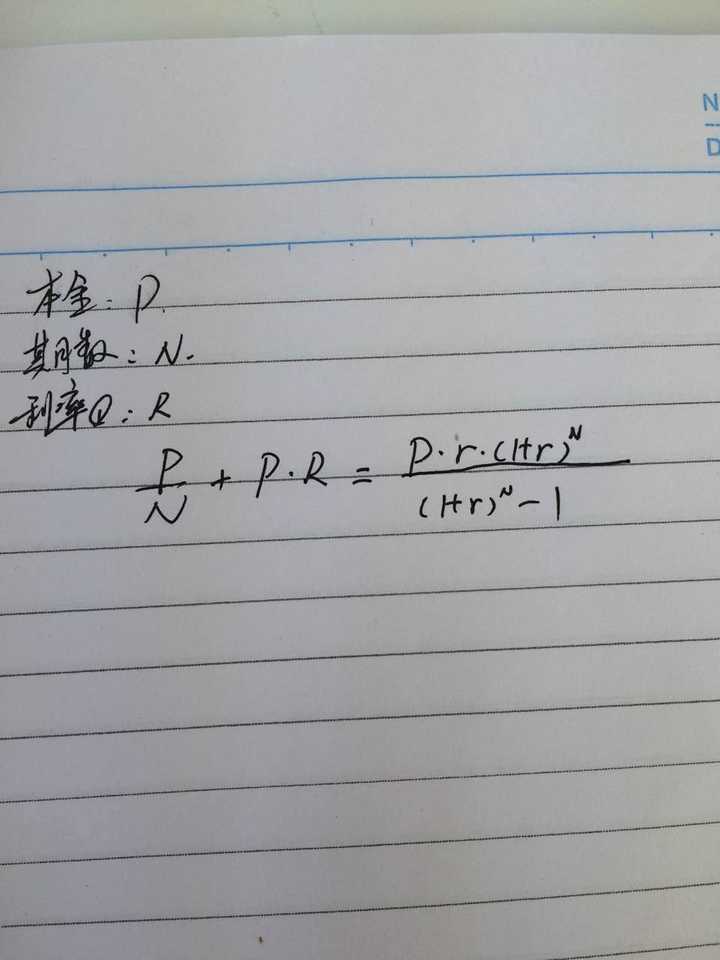 本金：P.
期数：N.
利率①：R
P/N + P·R = P·r·(1+r)^N / (1+r)^N - 1
N
D